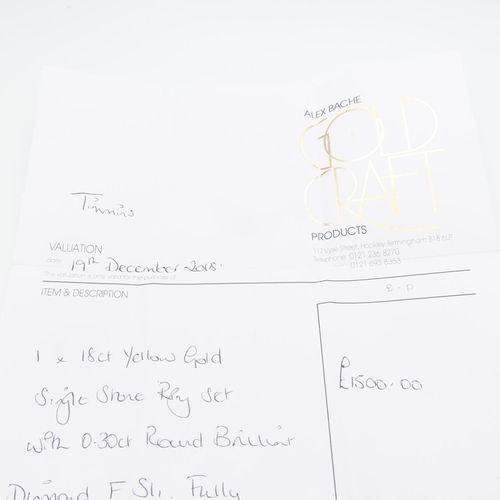 ALEX BACHE
GOLD
CRAFT
PRODUCTS
Hockley Birmingham B18 6LT
Telephone: 0121 236 8270
0121 693 8353
VALUATION
date 19th December 2018.
This valuation is only valid for the purpose of
ITEM & DESCRIPTION
£ - p
1 x 18ct Yellow Gold
Single Stone Ring set
with 0.30ct Round Brilliant
Diamond F SI1. Fully
£1500.00